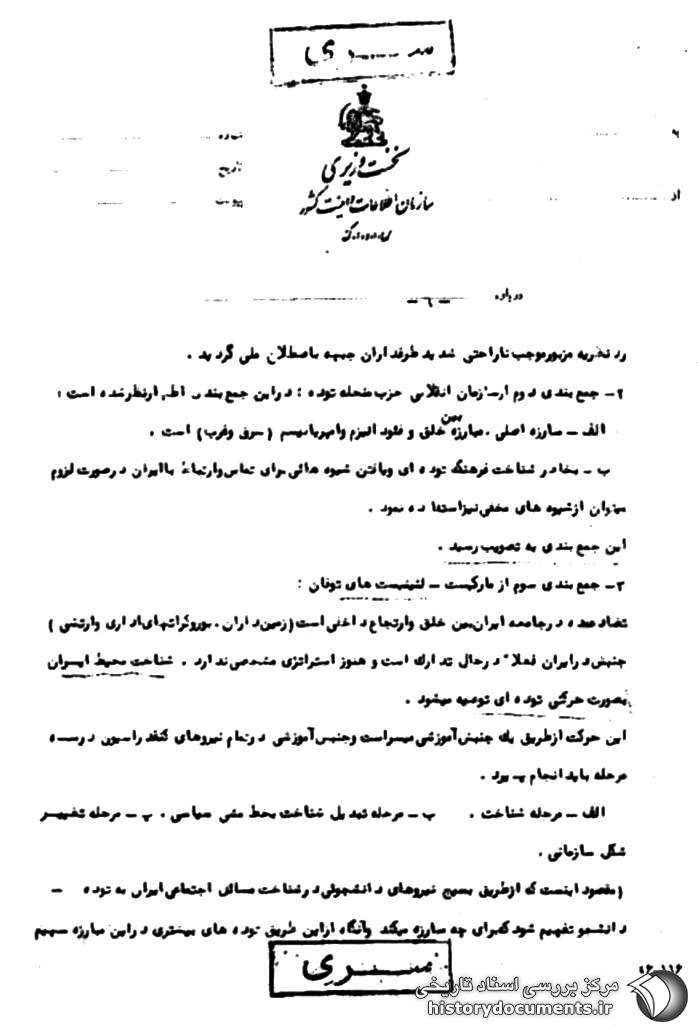 سری
نخست وزیری
سازمان اطلاعات و امنیت کشور
شماره
تاریخ
پیوست
از
درباره
-٦-
رد نظریه مزبور موجب ناراحتی شدید طرفداران جبهه باصطلاح ملی گردید .
٢- جمع بندی دوم از سازمان انقلابی حزب منحله توده : در این جمع بندی اظهار نظر شده است :
الف - مبارزه اصلی . مبارزه بین خلق و فئودالیزم وامپریالیسم ( شرق وغرب ) است .
ب - بخاطر شناخت فرهنگ توده ای ویافتن شیوه هائی برای تماس وارتباط باایران در صورت لزوم
میتوان از شیوه های مخفی نیز استفاده نمود .
این جمع بندی به تصویب رسید .
٣- جمع بندی سوم از مارکیست - لنینیست های توفان :
تضاد عمده در جامعه ایران بین خلق وارتجاع داخلی است ( زمین داران . بوروکراتهای اداری وارتشی )
جنبش در ایران فعلاً در حال تدارك است و هنوز استراتژی مشخصی ندارد . شناخت محیط ایران
بصورت حرکتی توده ای توصیه میشود .
این حرکت از طریق یك جنبش آموزشی میسر است وجنبش آموزشی در تمام نیروهای کنفدراسیون در سه
مرحله باید انجام پذیرد .
الف - مرحله شناخت . ب - مرحله تبدیل شناخت بخط مشی سیاسی . پ - مرحله تغییر
شکل سازمانی .
( مقصود اینست که از طریق بسیج نیروهای دانشجوئی در شناخت مسائل اجتماعی ایران به توده -
دانشجو تفهیم شود که برای چه مبارزه میکند وآنگاه از این طریق توده های بیشتری در این مبارزه سهیم
سری
مرکز بررسی اسناد تاریخی
historydocuments.ir